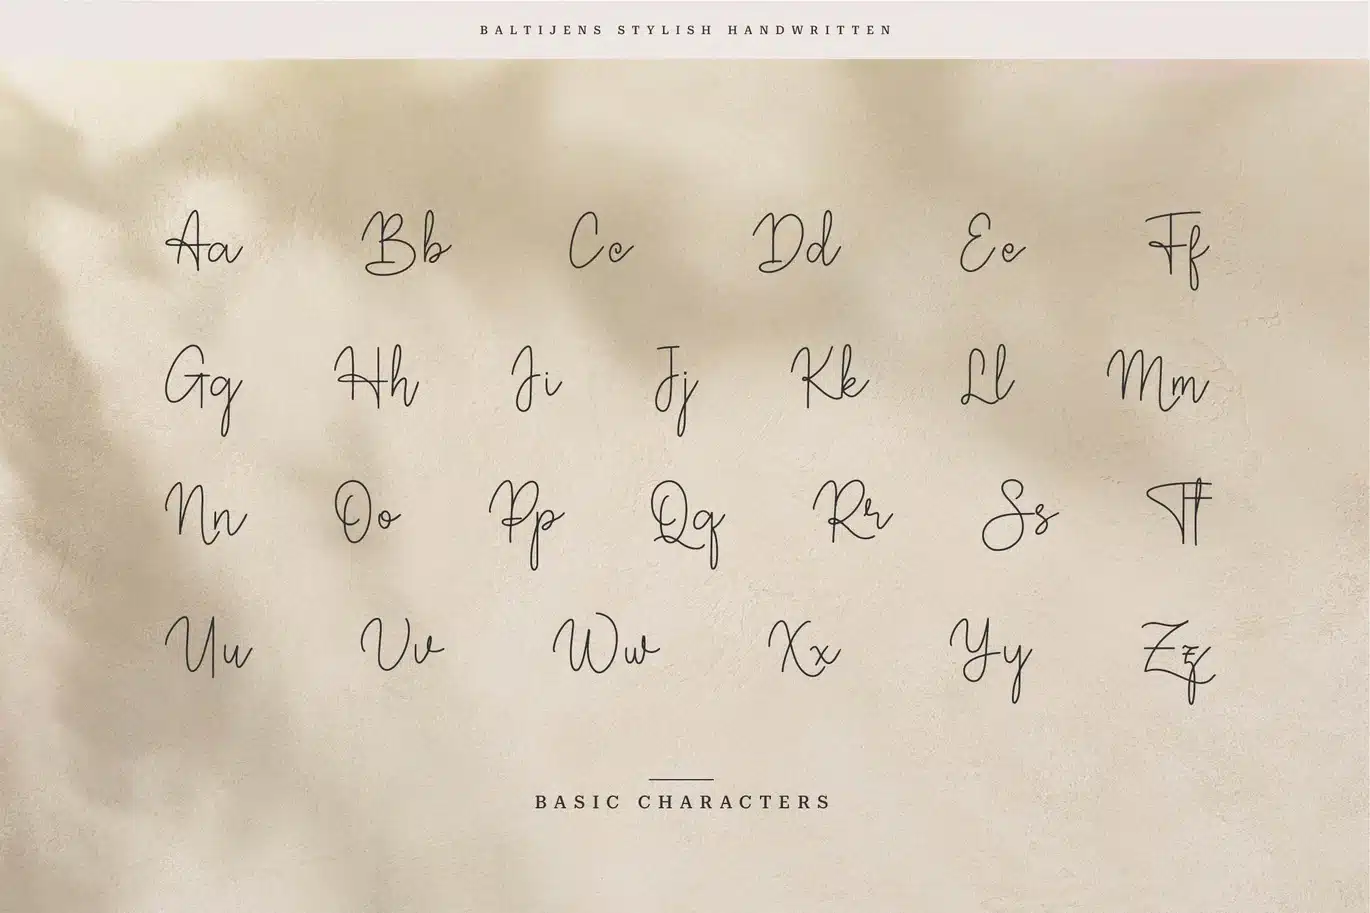 BALTIJENS STYLISH HANDWRITTEN
Aa Bb Cc Dd Ee Ff
Gg Hh Ii Jj Kk Ll Mm
Nn Oo Pp Qq Rr Ss Tt
Uu Vv Ww Xx Yy Zz
BASIC CHARACTERS